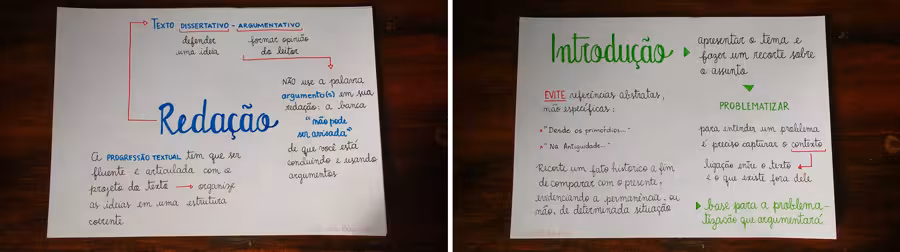 TEXTO DISSERTATIVO - ARGUMENTATIVO
defender
uma ideia
formar opinião
do leitor
NÃO use a palavra
argumento(s) em sua
redação: a banca
"não pode
ser avisada"
de que você está
concluindo e usando
argumentos
Redação
A PROGRESSÃO TEXTUAL tem que ser
fluente e articulada com o
projeto de texto → organize
as ideias em uma estrutura
coerente
Introdução
apresentar o tema e
fazer um recorte sobre
o assunto
PROBLEMATIZAR
EVITE referências abstratas,
não específicas:
"Desde os primórdios..."
"Na Antiguidade..."
Recorte um fato histórico a fim
de comparar com o presente,
evidenciando a permanência, ou
não, de determinada situação
para entender um problema
é preciso capturar o contexto
ligação entre o texto
e o que existe fora dele
base para a problema-
tização que argumentará